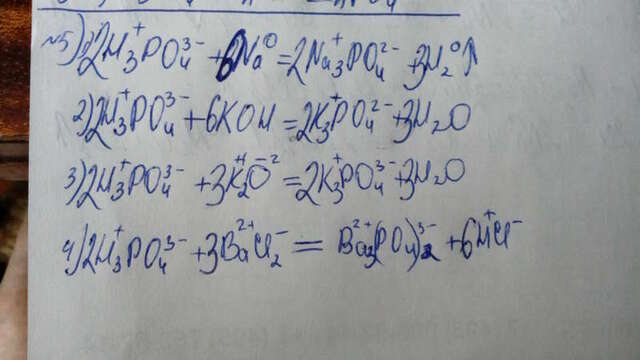 №5) 1) 2H₃⁺PO₄³⁻ + 6Na⁰ = 2Na₃⁺PO₄²⁻ + 3H₂⁰↑
2) 2H₃⁺PO₄³⁻ + 6KOH = 2K₃⁺PO₄²⁻ + 3H₂O
3) 2H₃⁺PO₄³⁻ + 3K₂⁺O⁻² = 2K₃⁺PO₄³⁻ + 3H₂O
4) 2H₃⁺PO₄³⁻ + 3Ba²⁺Cl₂⁻ = Ba₃²⁺(PO₄)₂³⁻ + 6H⁺Cl⁻